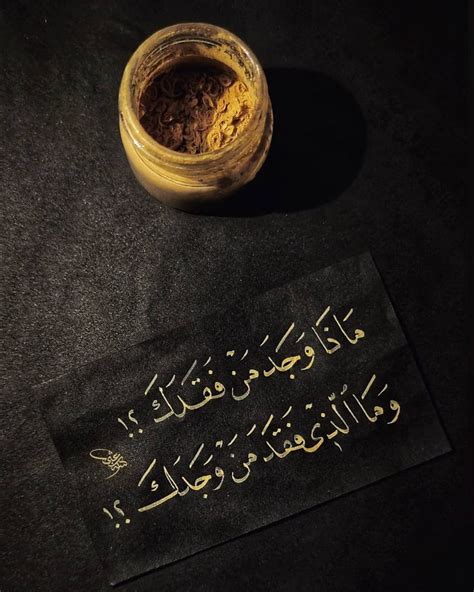 مَاذَا وَجَدَ مَنْ فَقَدَكَ ؟!
وَمَا الَّذِيْ فَقَدَ مَنْ وَجَدَكَ ؟!